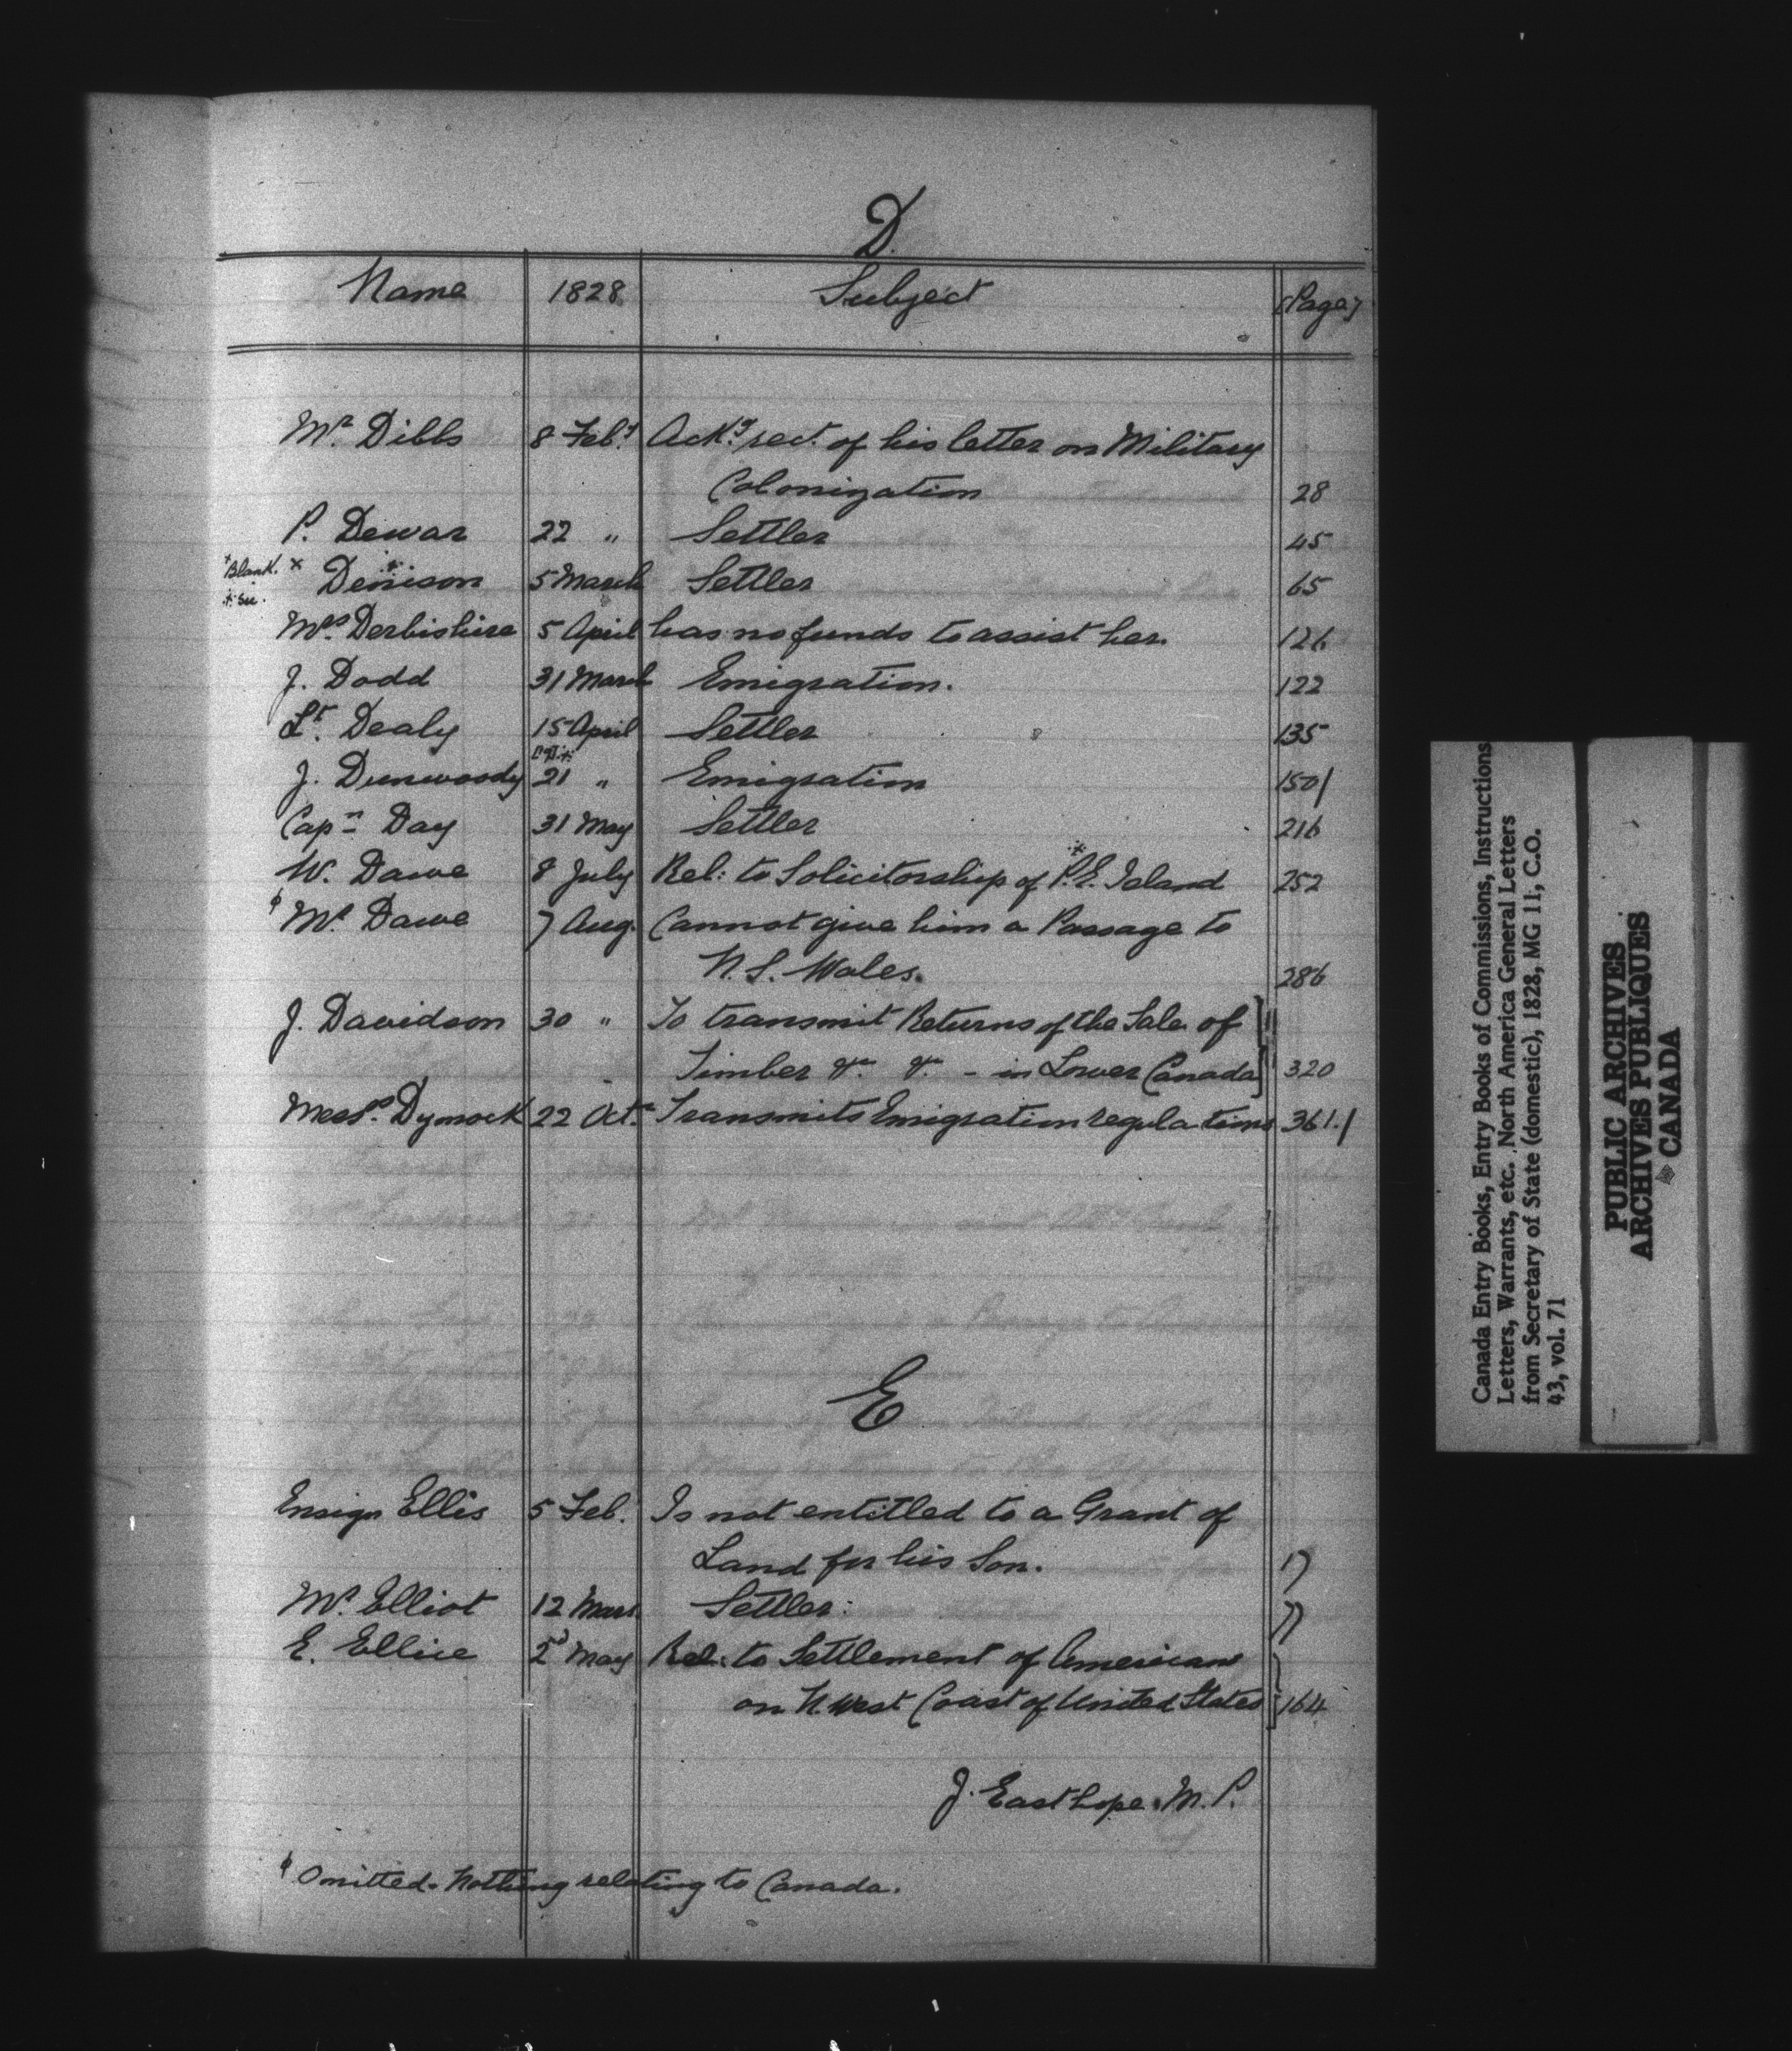 D.
Name 1828 Subject [Page]
Mr. Dibbs 8 Feby. Ackg. rect. of his letter on Military
Colonization 28
P. Dewar 22 " Settler 45
* Blank. x Denison 5 March Settler 65
sic.
Mrs. Derbishire 5 April has no funds to assist her. 126
J. Dodd 31 March Emigration. 122
Lt. Dealy 15 April Settler 135
J. Dunwoody 21 " Emigration 150/
Capn. Day 31 May Settler 216
W. Dawe 8 July Rel: to Solicitorship of P.E. Island 252
φ Mr. Dawe 7 Aug. Cannot give him a Passage to
N. S. Wales. 286
J. Davidson 30 " To transmit Returns of the Sale of
Timber &c. &c. - in Lower Canada] 320
Messrs. Dymock 22 Oct. Transmits Emigration regulations 361./
E
Ensign Ellis 5 Feb. Is not entitled to a Grant of
Land for his Son. 17
Mr. Elliot 12 Mar. Settler: 77
E. Ellice 2d May Rel: to Settlement of Americans
on N West Coast of United States] 164
J. Easthope. M. P.
φ Omitted. Nothing relating to Canada.
Canada Entry Books, Entry Books of Commissions, Instructions
Letters, Warrants, etc. North America General Letters
from Secretary of State (domestic), 1828, MG 11, C.O.
43, vol. 71
PUBLIC ARCHIVES
ARCHIVES PUBLIQUES
CANADA